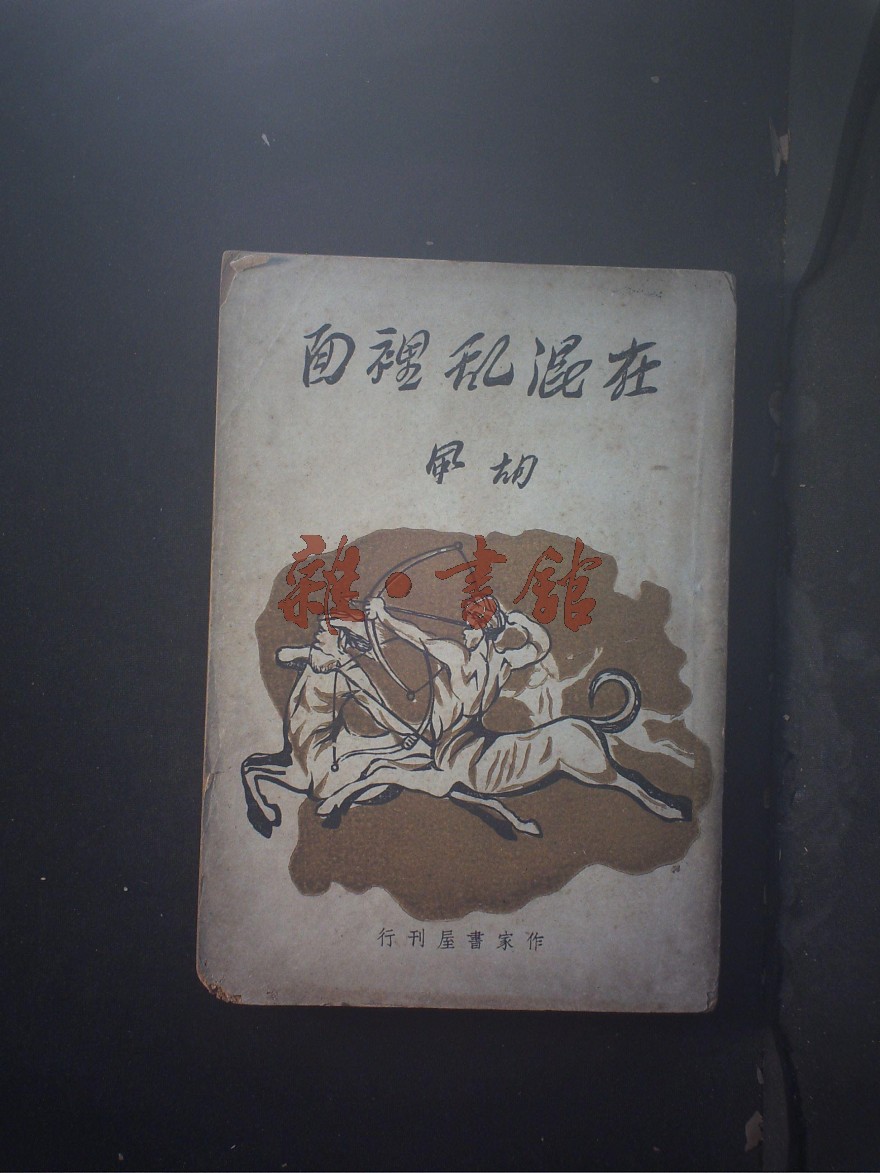 在混乱裡面
胡風
雜·書舘
作家書屋刊行